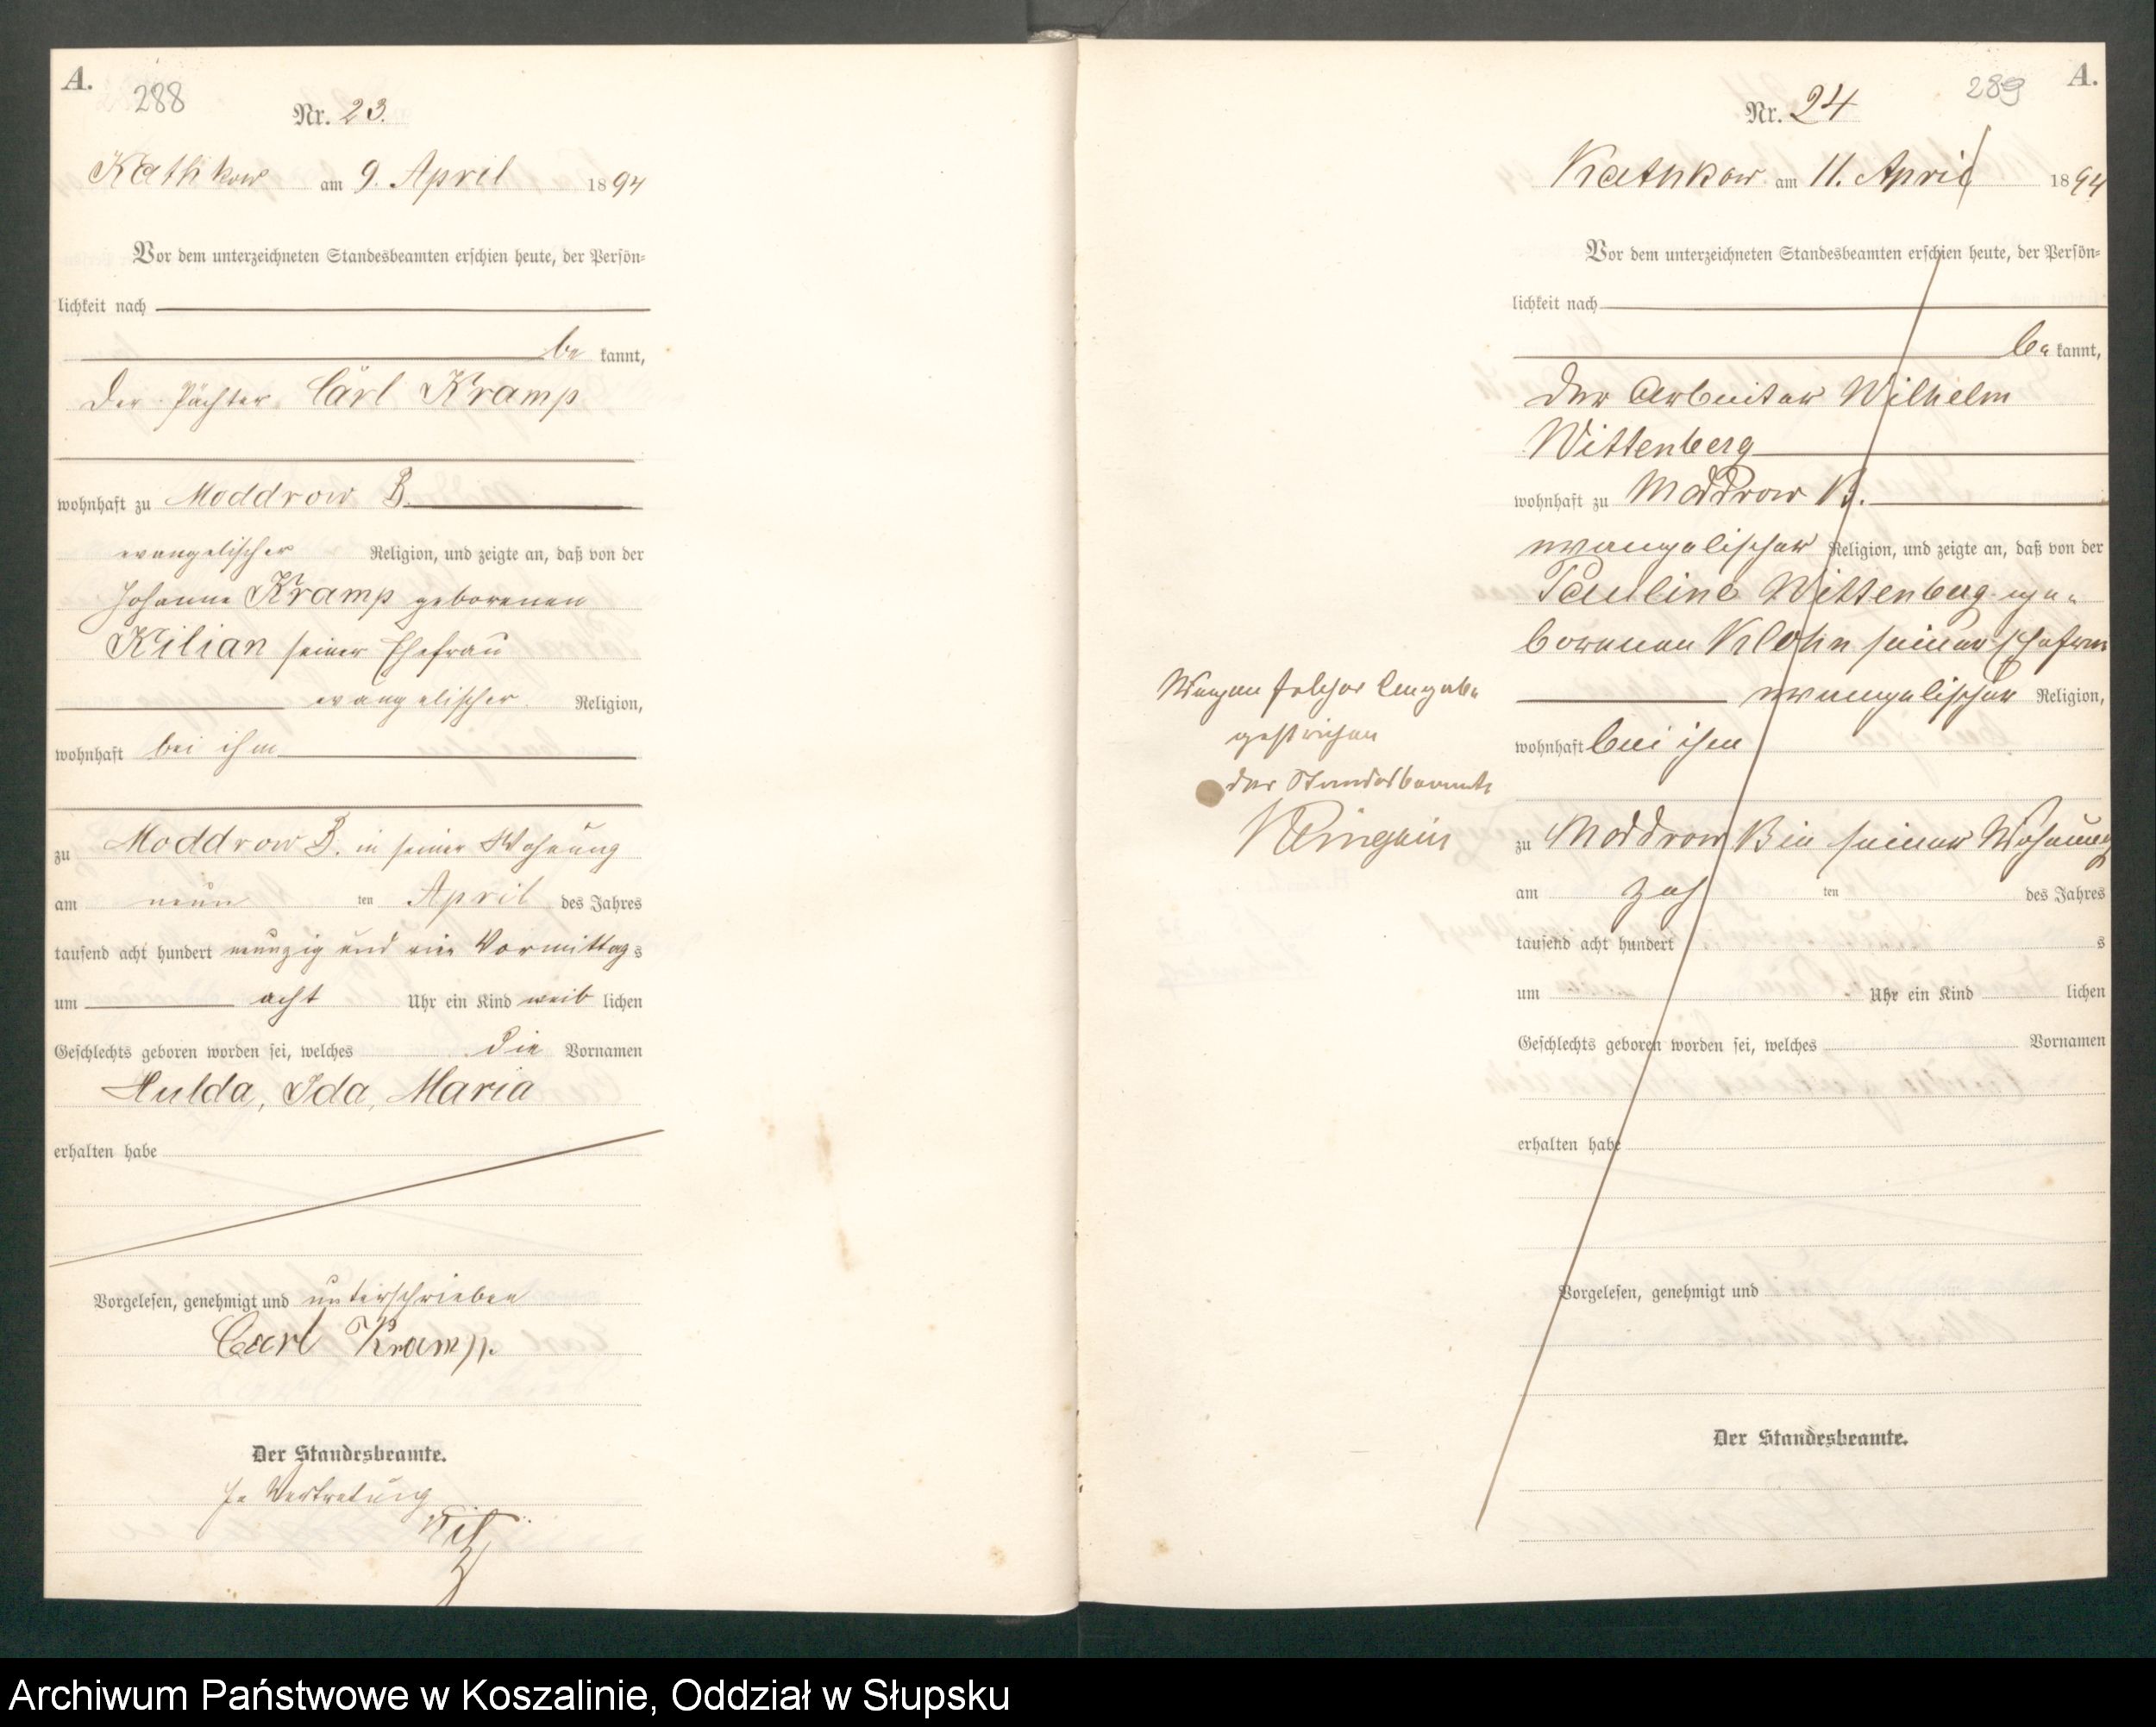 A.
288
Nr. 23.
Kathkow am 9. April 1894
Vor dem unterzeichneten Standesbeamten erschien heute, der Persön-
lichkeit nach
be kannt,
der Pächter Carl Kramp
wohnhaft zu Moddrow B.
evangelischer Religion, und zeigte an, daß von der
Johanne Kramp geborenen
Kilian seiner Ehefrau
evangelischer Religion,
wohnhaft bei ihm
zu Moddrow B. in seiner Wohnung
am neun ten April des Jahres
tausend acht hundert neunzig und vier Vormittag s
um acht Uhr ein Kind weib lichen
Geschlechts geboren worden sei, welches die Vornamen
Hulda, Ida, Maria
erhalten habe
Vorgelesen, genehmigt und unterschrieben
Carl Kramp.
Der Standesbeamte.
In Vertretung
289
A.
Nr. 24
Kathkow am 11. April 1894
Vor dem unterzeichneten Standesbeamten erschien heute, der Persön-
lichkeit nach
be kannt,
der Arbeiter Wilhelm
Wittenberg
wohnhaft zu Moddrow B.
evangelischer Religion, und zeigte an, daß von der
Pauline Wittenberg ge-
borenen Klohn seiner Ehefrau
evangelischer Religion,
wohnhaft bei ihm
zu Moddrow B in seiner Wohnung
am zeh ten des Jahres
tausend acht hundert s
um Uhr ein Kind lichen
Geschlechts geboren worden sei, welches Vornamen
erhalten habe
Vorgelesen, genehmigt und
Der Standesbeamte.
Wegen falscher Angabe
gestrichen
der Standesbeamte
Archiwum Państwowe w Koszalinie, Oddział w Słupsku